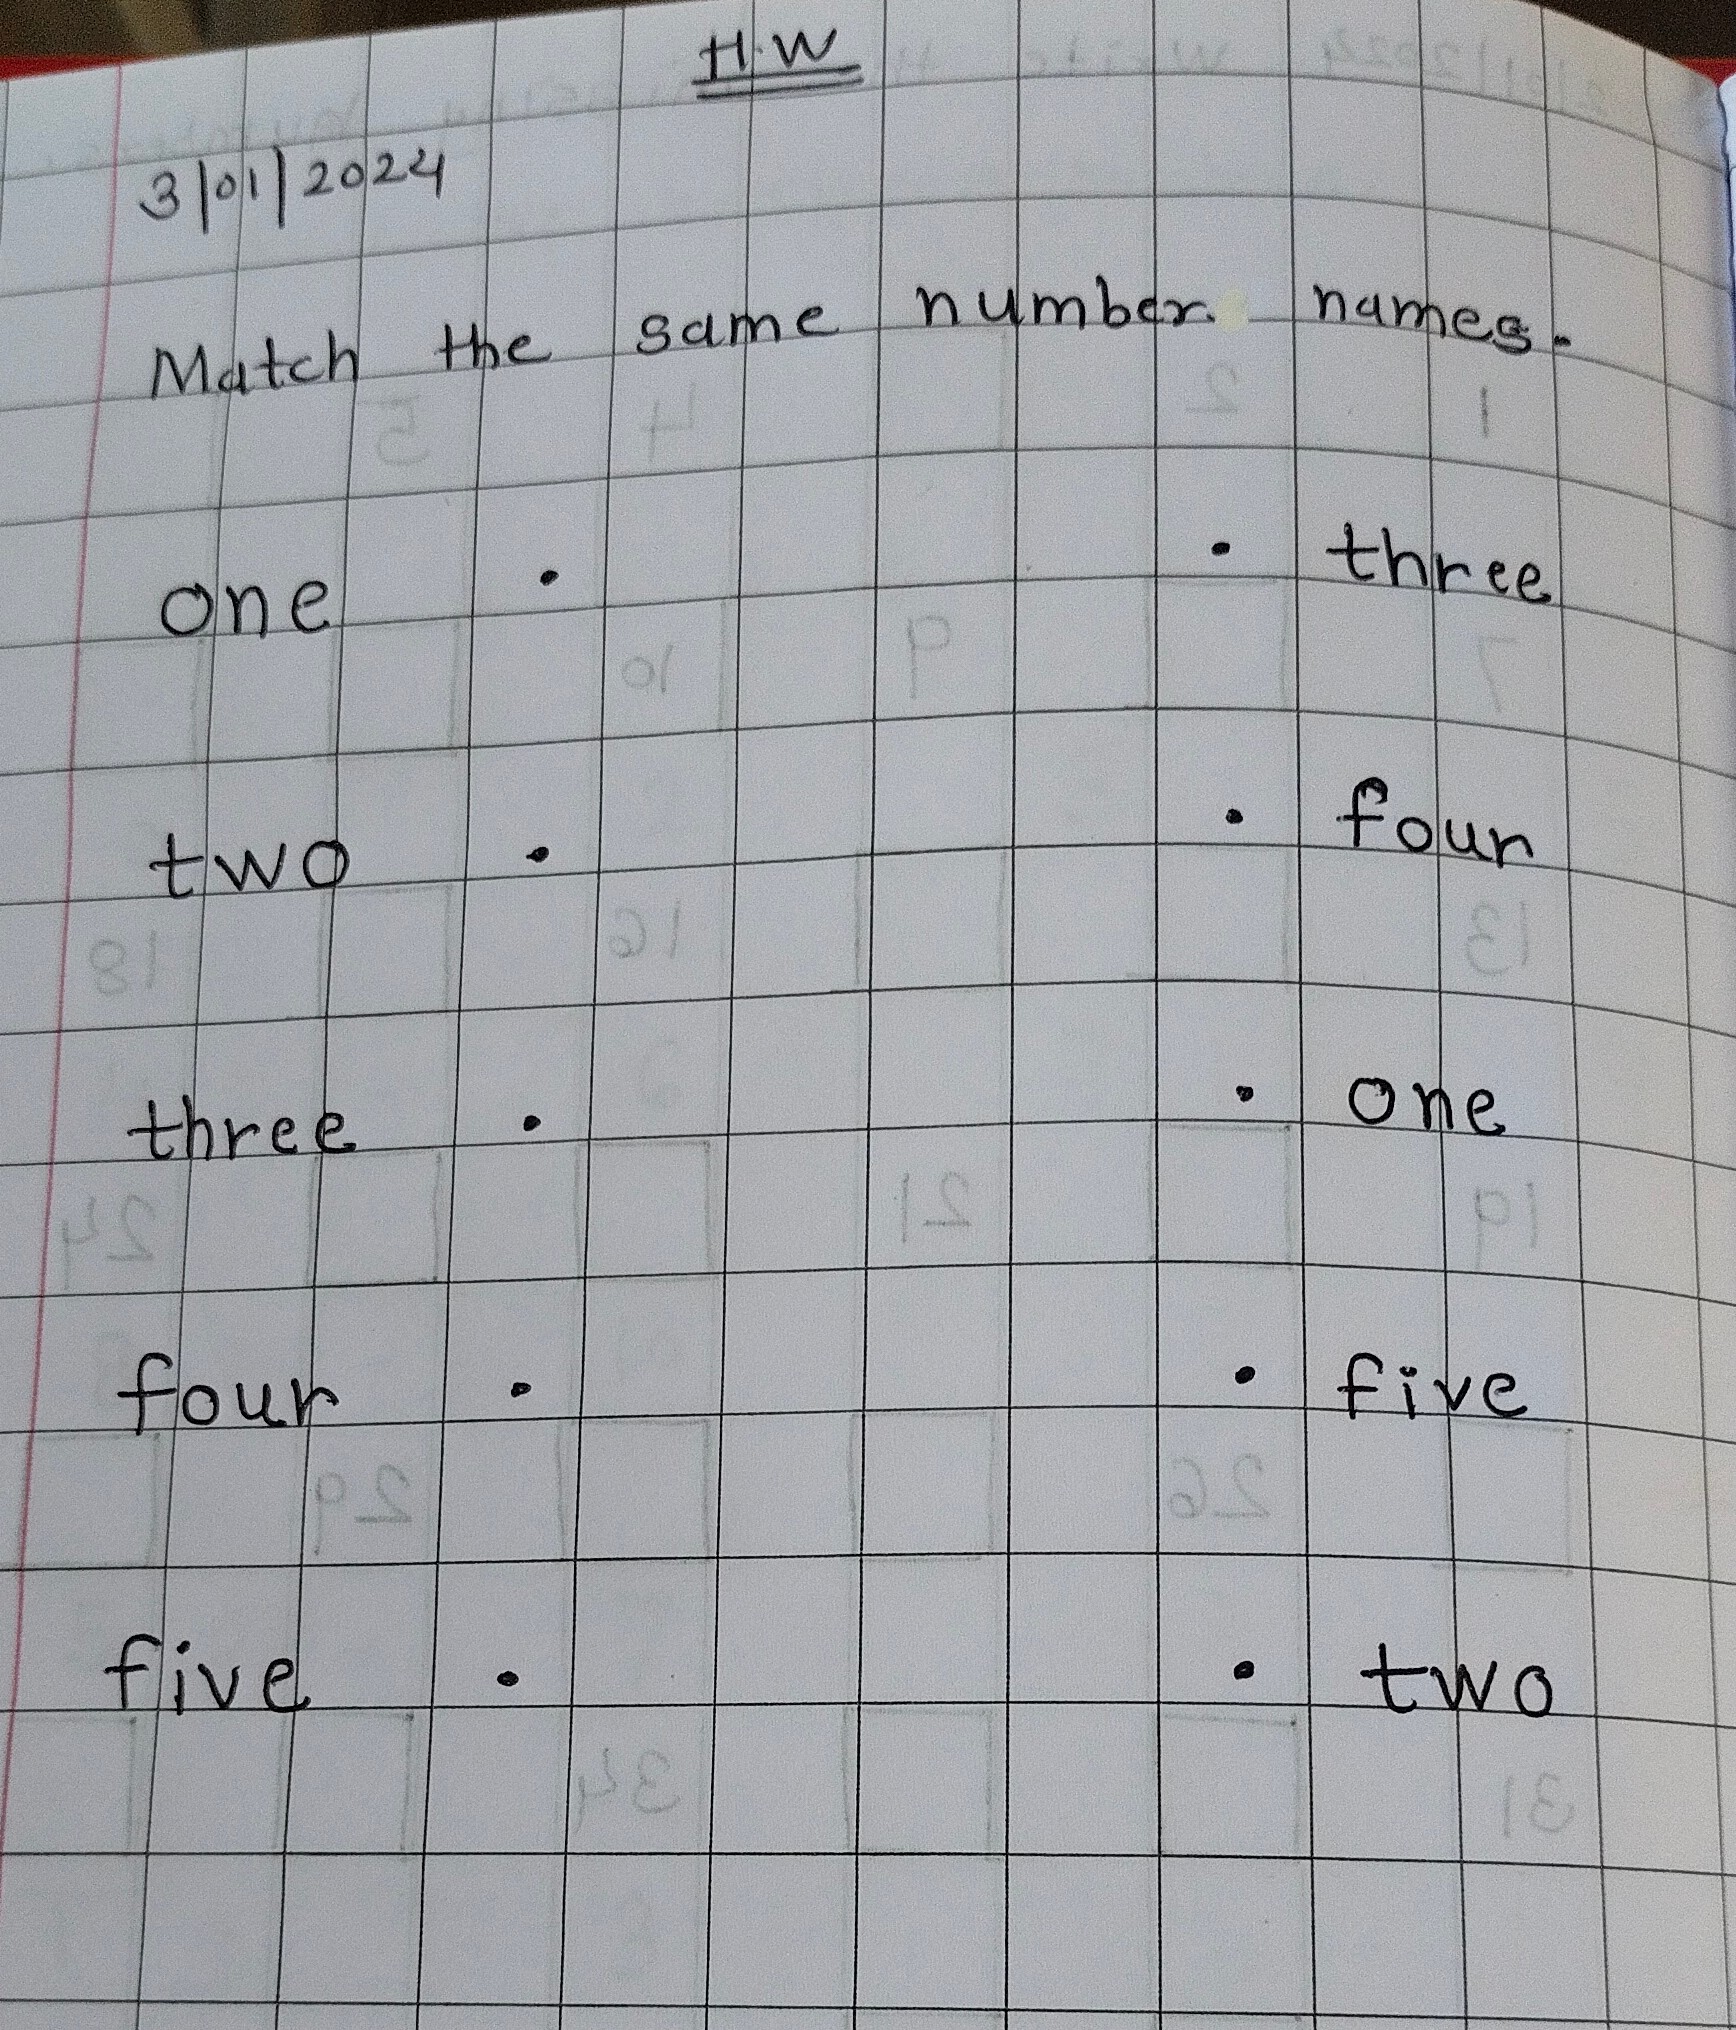 H.W
3/01/2024
Match the same number names.
one • • three
two • • four
three • • one
four • • five
five • • two